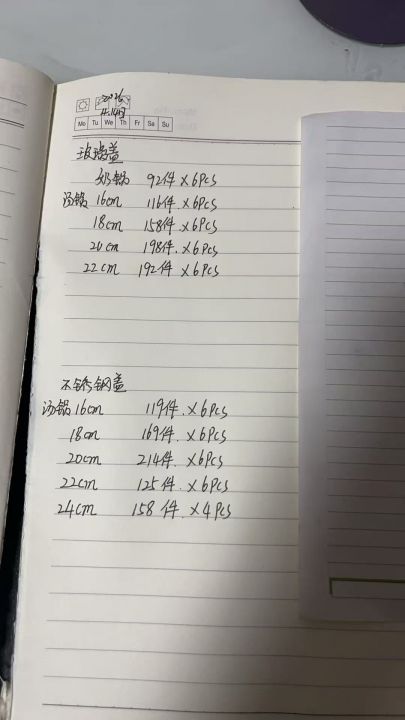 2026
4.14日
Mo Tu We Th Fr Sa Su
玻璃盖
奶锅 92件×6Pcs
汤锅 16cm 116件.×6Pcs
18cm 158件.×6Pcs
20cm 198件.×6Pcs
22cm 192件×6Pcs
不锈钢盖
汤锅 16cm 119件.×6Pcs
18cm 169件.×6Pcs
20cm 214件.×6Pcs
22cm 125件.×6Pcs
24cm 158件.×4Pcs